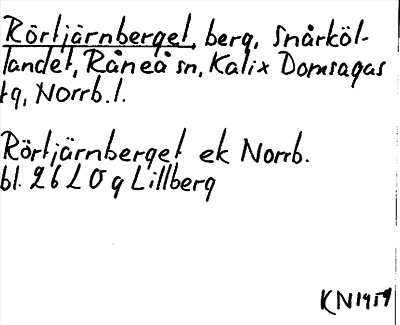 Rörtjärnberget, berg, Snårköl-
landet, Råneå sn, Kalix Domsagas
tg, Norrb. l.
Rörtjärnberget ek Norrb.
bl. 26 L 0 g Lillberg
KN 1959